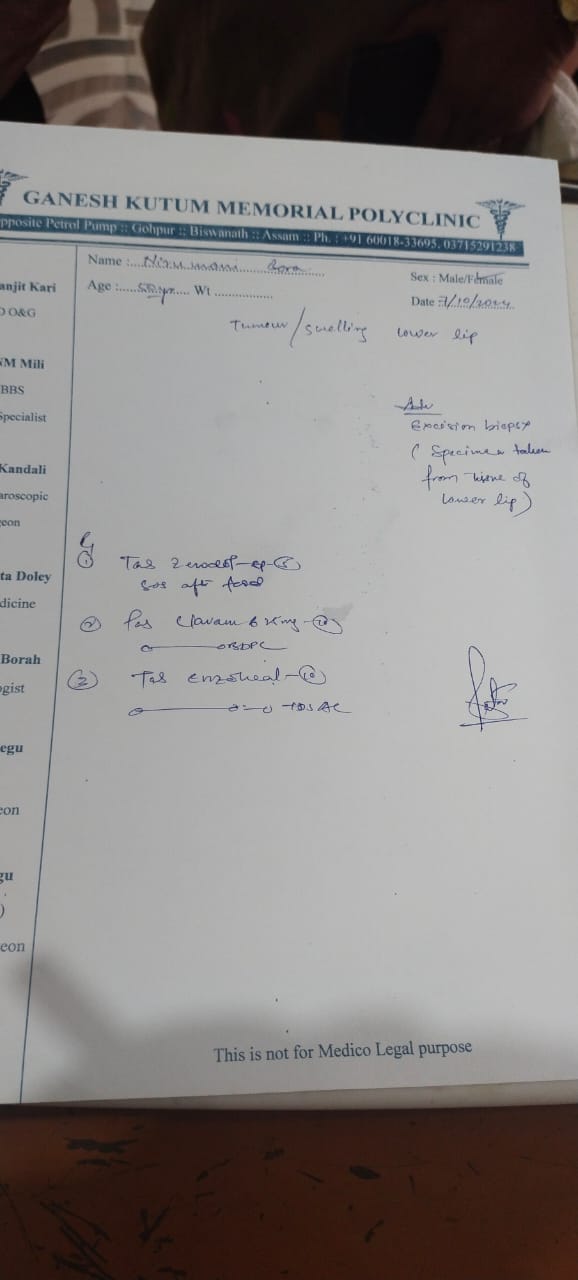 GANESH KUTUM MEMORIAL POLYCLINIC
pposite Petrol Pump :: Gohpur :: Biswanath :: Assam :: Ph. : +91 60018-33695, 03715291238
Name :.... Bora
Sex : Male/Female
Age :..... Wt ................
Date 7/10/2024
Tumour/swelling lower lip
anjit Kari
O&G
M Mili
BBS
Specialist
Kandali
aroscopic
eon
ta Doley
dicine
Borah
gist
egu
eon
gu
)
eon
Adv
Excision biopsy
( Specimen taken
from tissue of
lower lip)
① Tab Zerodol-sp-⑤
sos aft food
② Clavam 625mg-⑩
BDPC
③ Tab enzoheal-⑩
TDS AC
This is not for Medico Legal purpose